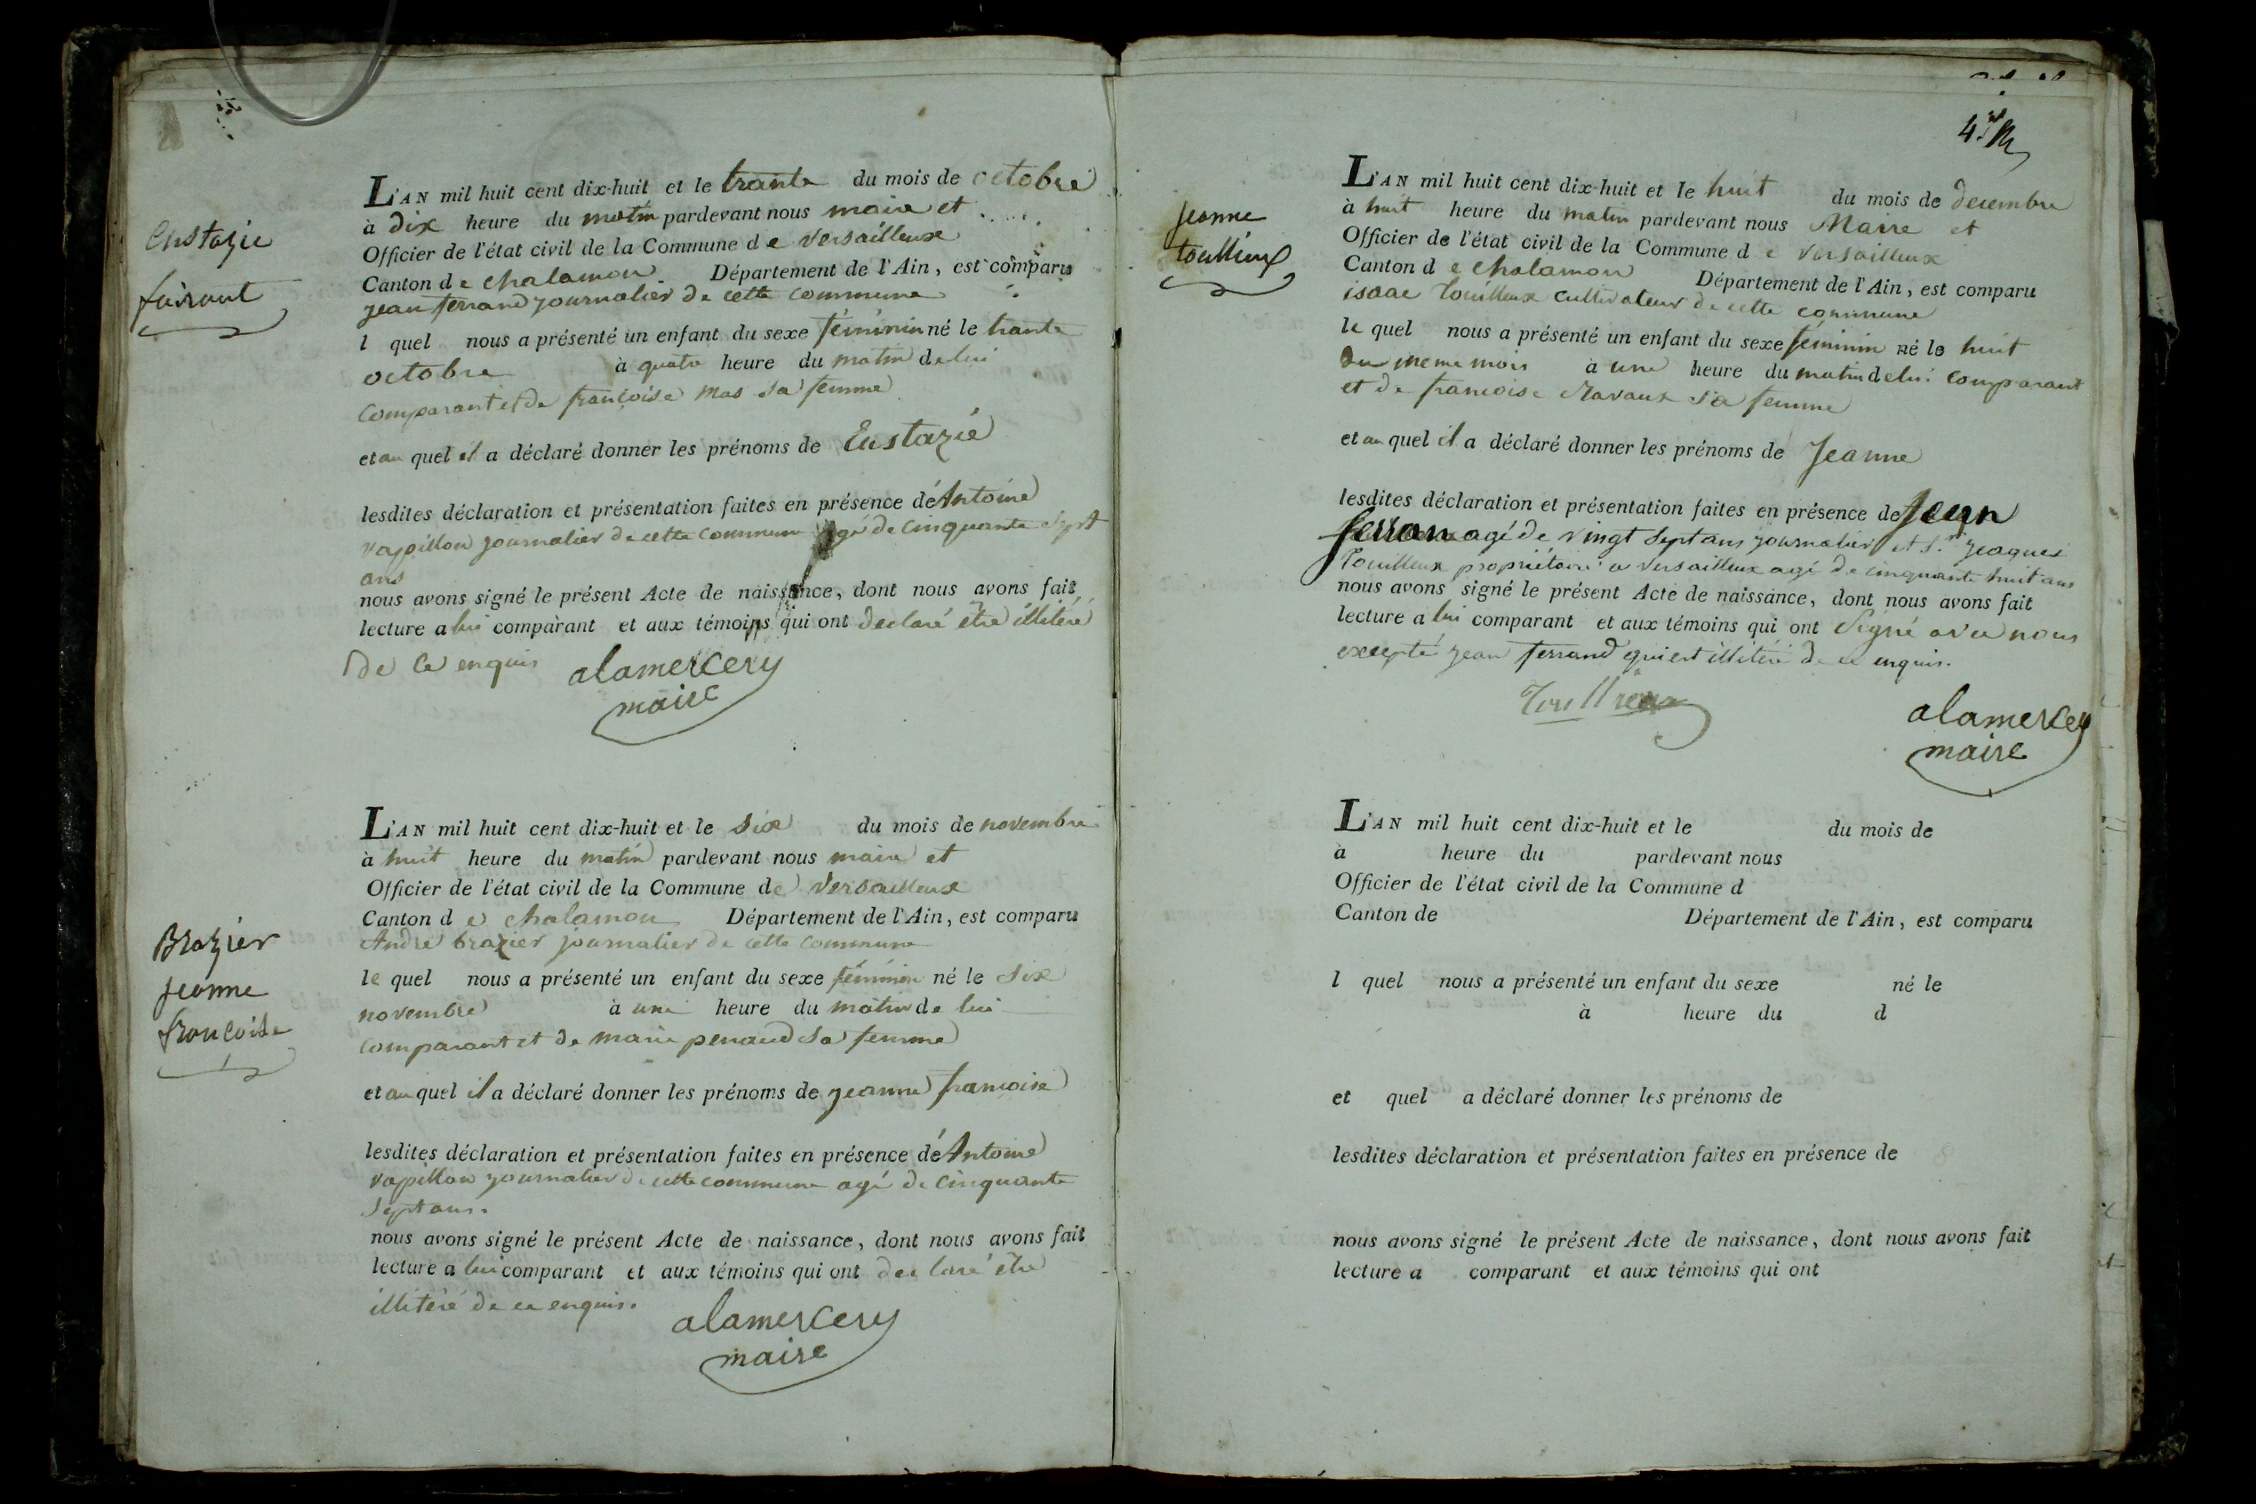 Eustazie
fairant
L'AN mil huit cent dix-huit et le trante du mois de octobre
à dix heure du matin pardevant nous maire et
Officier de l'état civil de la Commune de versailleux
Canton de chalamon Département de l'Ain, est comparu
jean ferrand journalier de cette commune
l quel nous a présenté un enfant du sexe féminin né le trante
octobre à quatre heure du matin de lui
comparant et de françoise mas sa femme
et au quel il a déclaré donner les prénoms de Eustazie
lesdites déclaration et présentation faites en présence de Antoine
vapillon journalier de cette commune agé de cinquante sept
ans
nous avons signé le présent Acte de naissance, dont nous avons fait
lecture a lui comparant et aux témoins qui ont declaré être illitéré
de ce enquis
alamercery
maire
Brazier
jeanne
francoise
L'AN mil huit cent dix-huit et le six du mois de novembre
à huit heure du matin pardevant nous maire et
Officier de l'état civil de la Commune de versailleux
Canton de chalamon Département de l'Ain, est comparu
André brazier journalier de cette commune
le quel nous a présenté un enfant du sexe féminin né le six
novembre à une heure du matin de lui
comparant et de marie penaud sa femme
et au quel il a déclaré donner les prénoms de jeanne francoise
lesdites déclaration et présentation faites en présence de Antoine
vapillon journalier de cette commune agé de cinquante
sept ans.
nous avons signé le présent Acte de naissance, dont nous avons fait
lecture a lui comparant et aux témoins qui ont declaré être
illitéré de ce enquis.
alamercery
maire
jeanne
toullieux
L'AN mil huit cent dix-huit et le huit du mois de decembre
à huit heure du matin pardevant nous Maire et
Officier de l'état civil de la Commune de versailleux
Canton de chalamon Département de l'Ain, est comparu
isaac Touilleux cultivateur de cette commune
le quel nous a présenté un enfant du sexe féminin né le huit
du meme mois à une heure du matin de lui comparant
et de francoise sa femme
et au quel il a déclaré donner les prénoms de Jeanne
lesdites déclaration et présentation faites en présence de Jean
ferran agé de vingt sept ans journalier et s.r jeaques
Touilleux propriétaire a versailleux agé de cinquante huit ans
nous avons signé le présent Acte de naissance, dont nous avons fait
lecture a lui comparant et aux témoins qui ont signé avec nous
excepté jean ferrand qui est illitéré de ce enquis.
Toullieux
alamercery
maire
L'AN mil huit cent dix-huit et le du mois de
à heure du pardevant nous
Officier de l'état civil de la Commune d
Canton de Département de l'Ain, est comparu
l quel nous a présenté un enfant du sexe né le
à heure du d
et quel a déclaré donner les prénoms de
lesdites déclaration et présentation faites en présence de
nous avons signé le présent Acte de naissance, dont nous avons fait
lecture a comparant et aux témoins qui ont